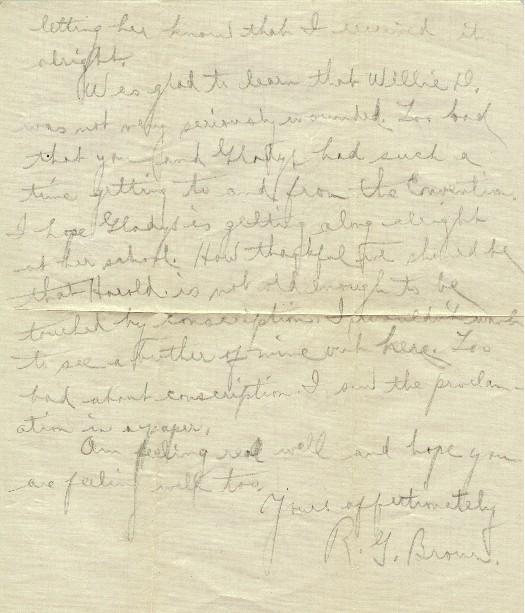 letting her know that I received it
alright.
Was glad to learn that Willie D.
was not very seriously wounded. Too bad
that you and Gladys had such a
time getting to and from the Convention.
I hope Gladys is getting along alright
at her school. How thankful we should be
that Harold is not old enough to be
touched by conscription. I wouldn't wish
to see a brother of mine out here. Too
bad about conscription. I saw the proclam-
ation in a paper.
Am feeling real well and hope you
are feeling well too.
Yours affectionately
R. G. Brown.